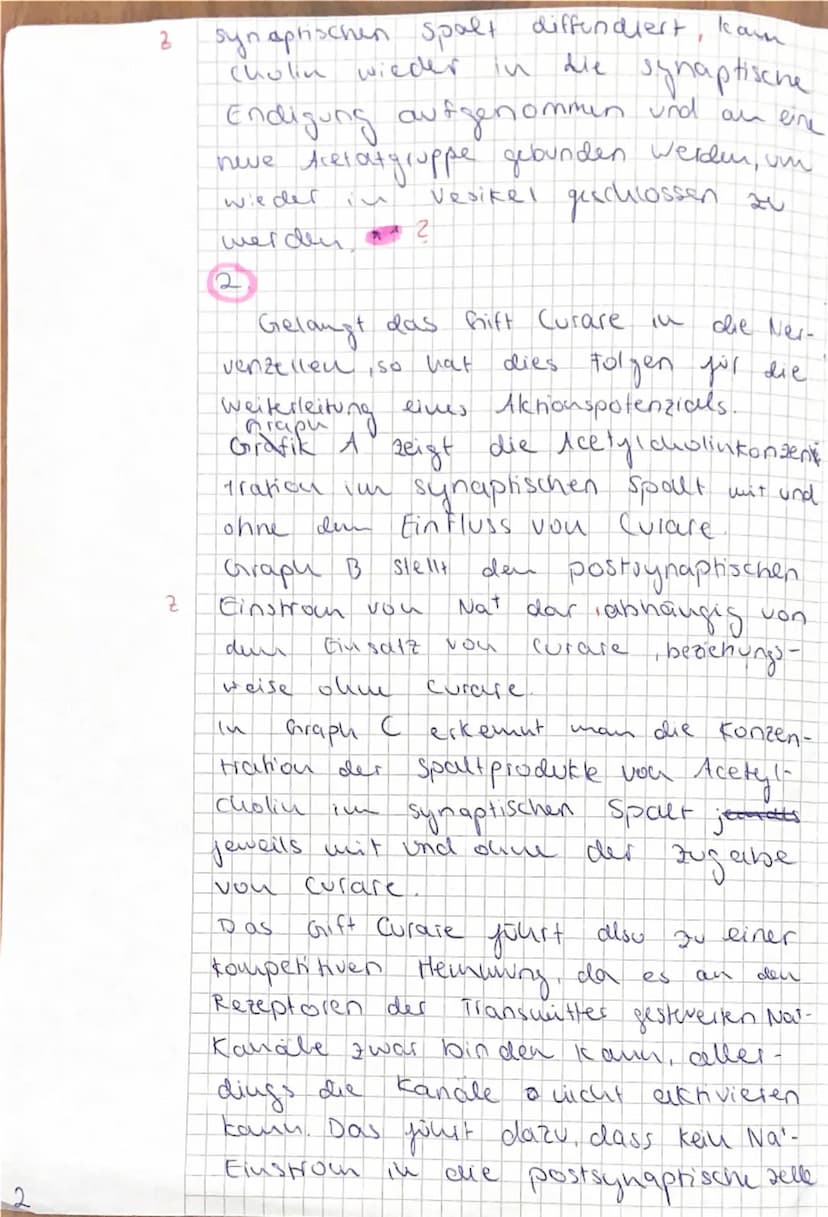 z synaptischen Spalt diffundiert, kann
Cholin wieder in die synaptische
Endigung aufgenommen und an eine
neue Acetatgruppe gebunden werden, um
wieder in Vesikel geschlossen zu
werden. ** ?
2
Gelangt das Gift Curare in die Ner-
venzellen, so hat dies Folgen für die
Weiterleitung eines Aktionspotenzials.
Graph
Grafik A zeigt die Acetylcholinkonzen
tration im synaptischen Spalt mit und
ohne dem Einfluss von Curare.
Graph B stellt den postsynaptischen
z Einstrom von Na⁺ dar, abhängig von
dem Einsatz von Curare, beziehungs-
weise ohne Curare.
In Graph C erkennt man die Konzen-
tration der Spaltprodukte von Acetyl-
cholin im synaptischen Spalt
jeweils mit und ohne der Zugabe
von Curare.
Das Gift Curare führt also zu einer
kompetitiven Hemmung, da es an den
Rezeptoren der Transmitter gesteuerten Na⁺-
Kanäle zwar binden kann, aller-
dings die Kanäle nicht aktivieren
kann. Das führt dazu, dass kein Na⁺-
Einstrom in die postsynaptische Zelle
2